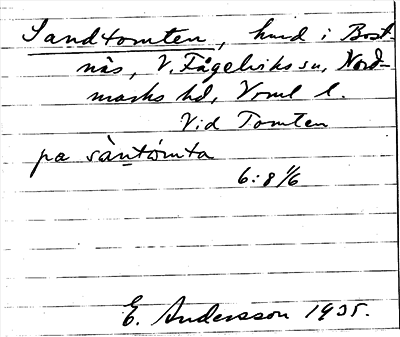 Sandtomten, hmd i Bost-
näs, V. Fågelviks sn, Nord-
marks hd, Vrml l.
Vid Tomten
pa sàntómta
6:8 1/6
E. Andersson 1935.